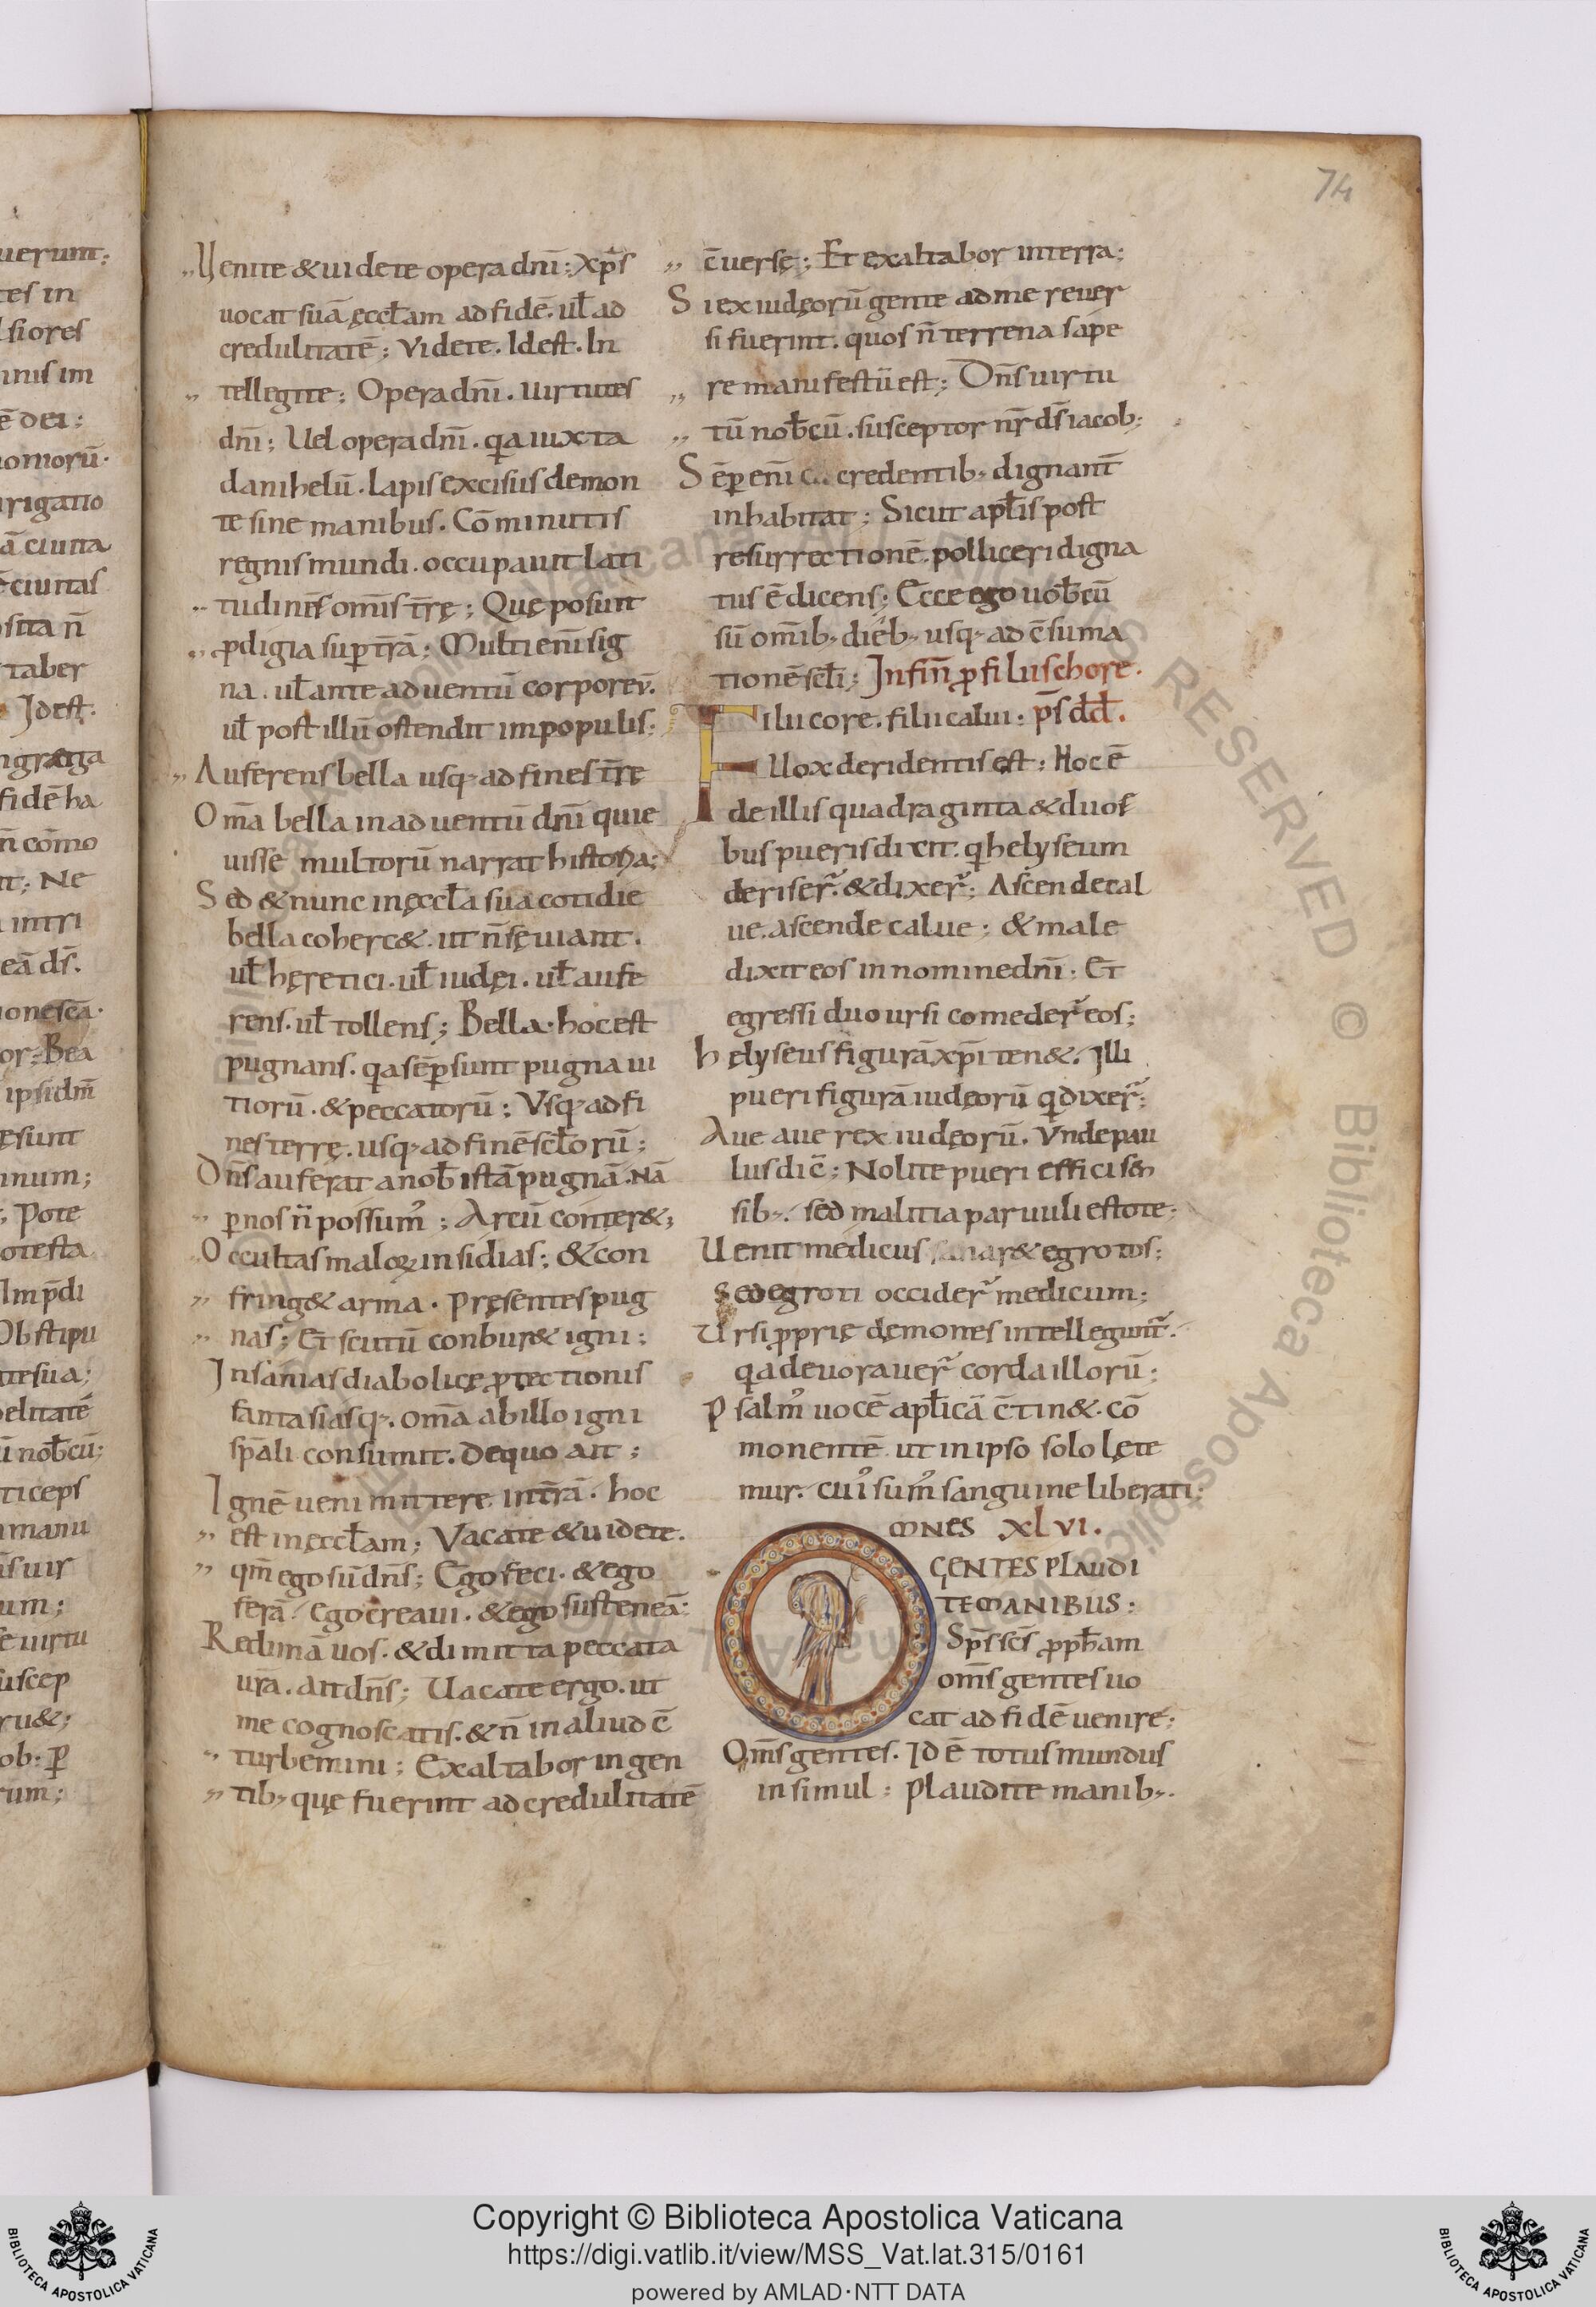 uerunt;
tes in
lsiores
inis im
ē dei;
rigatio
ā ciuita
ē ciuitas
sita n̄
taber
Idest.
fidē ha
n̄ cōmo
t; Ne
intri
eā dš.
or; Bea
ipsi dn̄i
ęsunt
inum;
; Pote
otesta
Obstipu
tesua;
elitatē
ū nob̄cū;
ticeps
manu
um;
ē uirtu
suscep
ru&;
ob: ꝑ
rum;
74
„ Uenite & uidete opera dnī; xp̄s
uocat suā ęccl̄am ad fidē. ul̄ ad
credulitatē; Videte. Idest. In
„ tellegite; Opera dnī. uirtutes
dnī; Uel opera dnī. qa iuxta
danihelū. lapis excisus demon
te sine manibus. Cōminutis
regnis mundi. occupauit lati
„ tudinis om̄s tr̄ę; Quę posuit
„ ꝓdigia suꝑ tr̄ā; Multi enī sig
na. ul̄ ante aduentū corporeū.
ul̄ post illū ostendit impopulis;
„ Auferens bella usq; ad fines tr̄ę
Om̄a bella inaduentū dnī quie
uisse multorū narrat historia;
Sed & nunc inęccl̄a sua cotidie
bella coherc&. ut n̄ sęuiant.
ul̄ hęretici. ul̄ iudęi. ul̄ aufe
rens. ul̄ tollens; Bella. hoc est
pugnans. qa sēꝑ sunt pugna ui
tiorū. & peccatorū; Vsq; ad fi
nes terrę. usq; ad finē scl̄orū;
Dn̄s auferat a nob̄ istā pugnā. Nā
„ ꝑ nos n̄ possum᾿; Arcū conter&;
Occultas maloꝝ insidias; & con
„ fring& arma. Pręsentes pug
„ nas; Et scutū combur& igni;
Insanias diabolicę ꝓtectionis
fantasiasq;. om̄a ab illo igni
sp̄ali consumit. de quo ait;
Ignē ueni mittere in tr̄ā. hoc
„ est in ęccl̄am; Vacate & uidete.
„ qm̄ ego sū dn̄s; Ego feci. & ego
ferā. Ego creaui. & ego sustineā;
Redimā uos. & dimitta peccata
ur̄a. ait dn̄s; Uacate ergo. ut
me cognoscatis. & n̄ in aliud c̄
„ turbemini; Exaltabor in gen
„ tib; quę fuerint ad credulitatē
„ c̄uersę; Et exaltabor in terra;
Si ex iudęorū gente ad me reuer
si fuerint. quos n̄ terrena sape
re manifestū est; Dn̄s uirtu
„ tū nob̄cū. susceptor nr̄ ds̄ iacob;
Sēꝑ enī credentib; dignant̄
inhabitat; Sicut apl̄is post
resurrectionē. polliceri digna
tus ē dicens; Ecce ego uob̄cū
sū om̄ib; dieb; usq; ad c̄suma
tionē scl̄i; In fin̄ ꝓ filiis chore.
Filii core. filii calui; ps̄ dd̄.
Uox deridentis est; Hoc ē
de illis quadraginta & duos
bus pueris dixit. q helyseum
deriser̄. & dixer̄; Ascende cal
ue. ascende calue; & male
dixit eos in nomine dnī; Et
egressi duo ursi comeder̄ eos;
helyseus figurā xp̄i ten&. Illi
pueri figurā iudęorū qdixer̄;
Aue aue rex iudęorū. Vnde pau
lus dic̄; Nolite pueri effici sen
sib;. sed malitia paruuli estote;
Uenit medicus sanar& egrotos;
sed egroti occider̄ medicum;
Ursi ꝓprię demones intellegunt̄.
qa deuorauer̄ corda illorū;
Psalm᾿ uocē apl̄icā c̄tin&. cō
monentē ut in ipso solo lęte
mur. cui᾿ sum᾿ sanguine liberati;
OMNES XLVI.
GENTES PLAUDI
TE MANIBUS;
Sp̄s scs̄ ꝓph̄am
om̄s gentes uo
cat ad fidē uenire;
Om̄s gentes. Id ē totus mundus
in simul; Plaudite manib;.
Copyright © Biblioteca Apostolica Vaticana
https://digi.vatlib.it/view/MSS_Vat.lat.315/0161
powered by AMLAD·NTT DATA
BIBLIOTECA APOSTOLICA VATICANA
BIBLIOTECA APOSTOLICA VATICANA